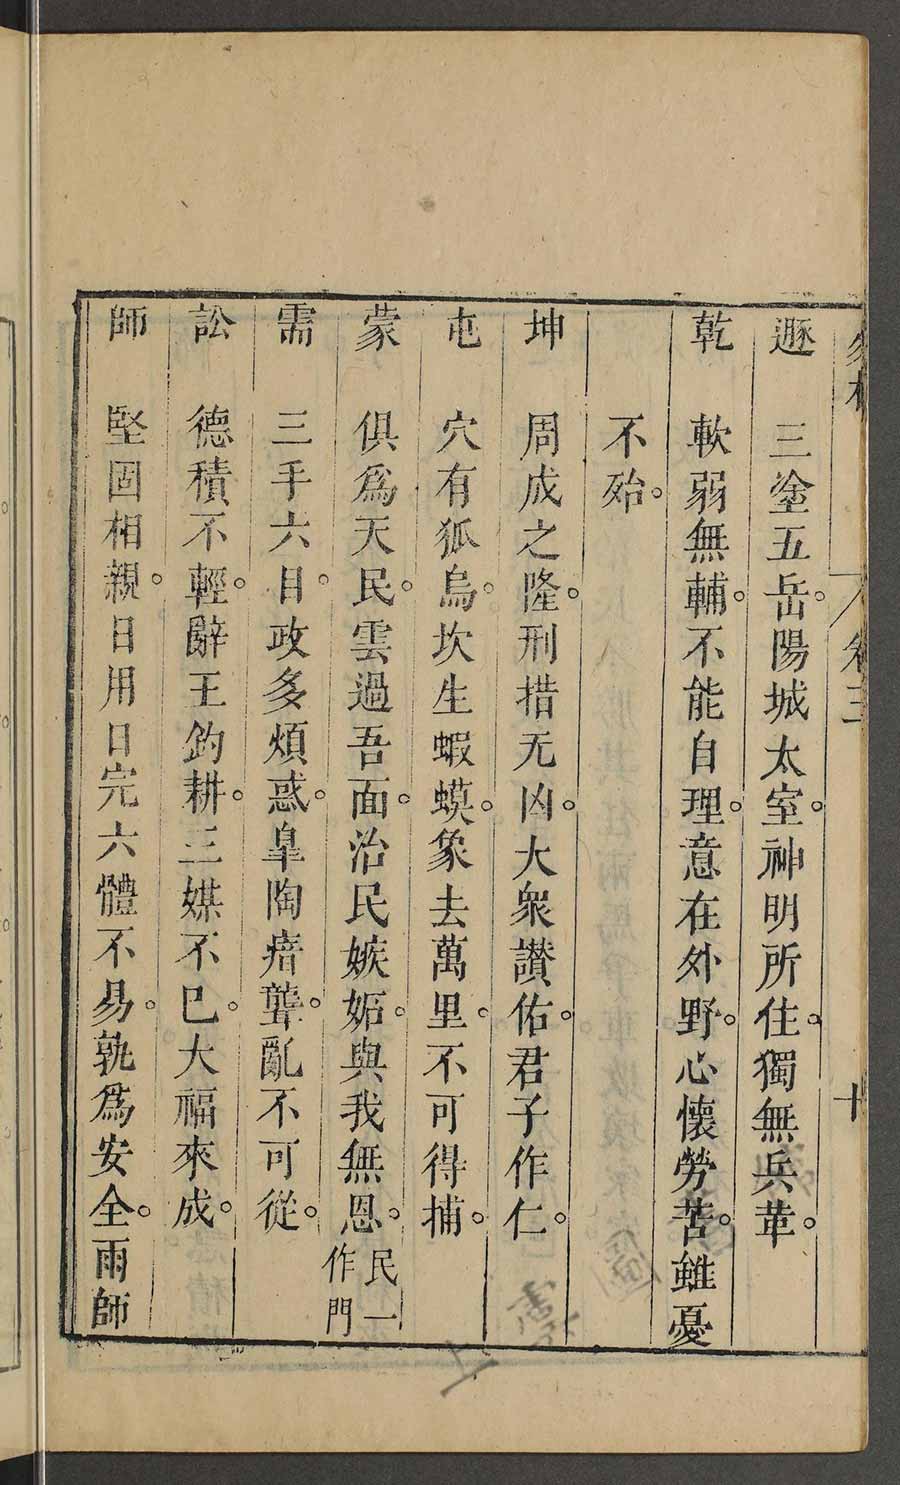 遯　三塗五岳。陽城太室。神明所住。獨無兵革。
乾　軟弱無輔。不能自理。意在外野。心懷勞苦。雖憂
不殆。
坤　周成之隆。刑措无凶。大衆讃佑。君子作仁。
屯　穴有狐烏。坎生蝦蟆。象去萬里。不可得捕。
蒙　俱爲天民。雲過吾面。治民嫉妬。與我無恩。民一作門
需　三手六目。政多煩惑。臯陶瘖聾。亂不可從。
訟　德積不輕。辭王釣耕。三媒不已。大福來成。
師　堅固相親。日用日完。六體不易。孰爲安全。雨師